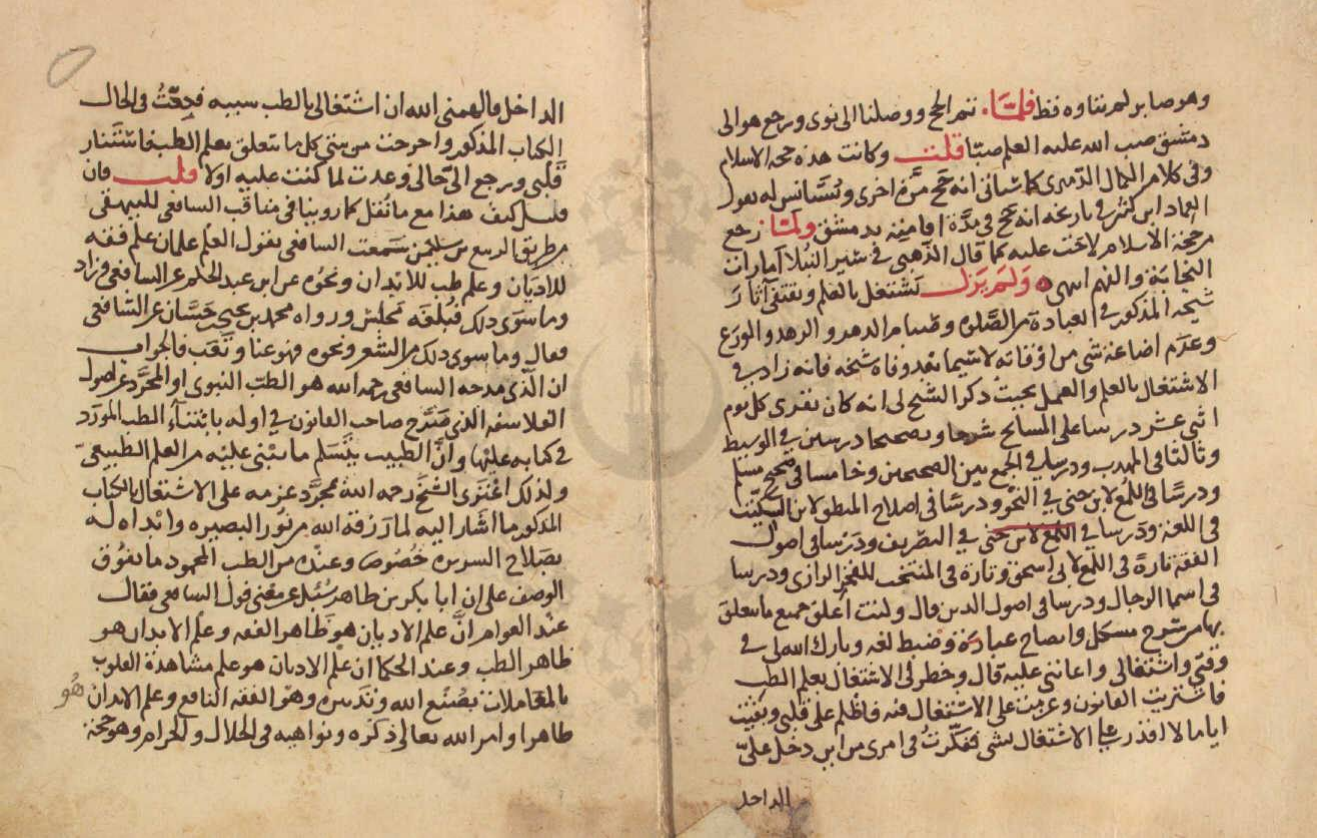 وهو صابر لم يتأوه قط فلما تم الحج ووصلنا الى نوى ورجع هو الى
دمشق صب الله عليه العلم صبا قلت وكانت هذه حجة الاسلام
وفى كلام الكمال الدميرى كما سياتى انه حج مرة اخرى ويستانس له بقول
العماد ابن كثير فى تاريخه انه حج فى مدة اقامته بدمشق ولما رجع
من حجة الاسلام لاحت عليه كما قال الذهبى فى سير النبلا أمارات
النجابة والفهم انتهى ولم يزل يشتغل بالعلم ويقتفى آثار
شيخه المذكور فى العبادة من الصلوة وصيام الدهر والزهد والورع
وعدم اضاعة شى من اوقاته لاسيما بعد وفاة شيخه فانه زاد فى
الاشتغال بالعلم والعمل بحيث ذكر الشيخ لى انه كان يقرى كل يوم
اثنى عشر درسا على المشايخ شرحا وتصحيحا درسين فى الوسيط
وثالثا فى المهذب ودرسا فى الجمع بين الصحيحين وخامسا فى صحيح مسلم
ودرسًا فى اللمع لابن جنى فى النحو ودرسًا فى اصلاح المنطق لابن السكيت
فى اللغة ودرسا فى اللمع لابن جنى فى التصريف ودرسا فى اصول
الفقه تارة فى اللمع لابى اسحق وتارة فى المنتخب للفخر الرازى ودرسا
فى اسما الرجال ودرسا فى اصول الدين قال وكنت أعلق جميع ما يتعلق
بها من شرح مشكل وايضاح عبارة وضبط لغة وبارك الله لى فى
وقتى واشتغالى واعاننى عليه قال وخطر لى الاشتغال بعلم الطب
فاشتريت القانون وعزمت على الاشتغال فيه فاظلم على قلبى وبقيت
اياما لا اقدر على الاشتغال بشى ففكرت فى امرى من اين دخل علىّ
الداخل
الداخل فالهمنى الله ان اشتغالى بالطب سببه فبعت فى الحال
الكتاب المذكور واخرجت من بيتى كل ما يتعلق بعلم الطب فاستنار
قلبى ورجع الىّ حالى وعدت لما كنت عليه اولا قلت فان
قيل كيف هذا مع ما نُقل كما روينا فى مناقب الشافعى للبيهقى
من طريق الربيع بن سليمن سمعت الشافعى يقول العلم علمان علم فقه
للاديان وعلم طب للابدان ونحوه عن ابن عبد الحكم عن الشافعى وزاد
وما سوى ذلك فبلغة مجلس ورواه محمد بن يحيى بن حسان عن الشافعى
فقال وما سوى ذلك من الشعر ونحوه فهو عنا وتعب فالجواب
ان الذى مدحه الشافعى رحمه الله هو الطب النبوى او المجرد عن اصول
الفلاسفه الذى صَرّح صاحب القانون فى اوله بابتناء الطب المورد
فى كتابه عليها وانّ الطبيب يتسلم ما يبنى عليه من العلم الطبيعى
ولذلك اعترى الشيخ رحمه الله بمجرد عزمه على الاشتغال بالكتاب
المذكور ما اشار اليه لما رزقه الله من نور البصيره وابداه له
بصلاح السريره خصوص وعنده من الطب المحمود ما يفوق
الوصف على ان ابا بكر بن طاهر سُئل عن معنى قول الشافعى فقال
عند العوام انّ علم الاديان هو ظاهر الفقه وعلم الابدان هو
ظاهر الطب وعند الحكما ان علم الاديان هو علم مشاهدة القلوب
بالمعاملات بصُنع الله وتدبيره وهو الفقه النافع وعلم الابدان هُو
ظاهر اوامر الله تعالى ذكره ونواهيه فى الحلال والحرام وهو حجة